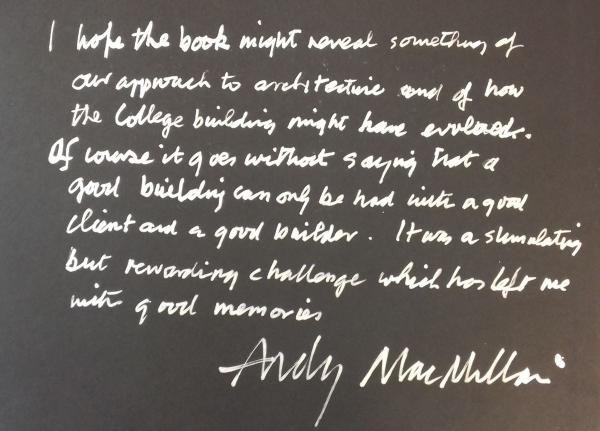 I hope the book might reveal something of
our approach to architecture and of how
the College building might have evolved.
Of course it goes without saying that a
good building can only be had with a good
client and a good builder. It was a stimulating
but rewarding challenge which has left me
with good memories
Andy MacMillan